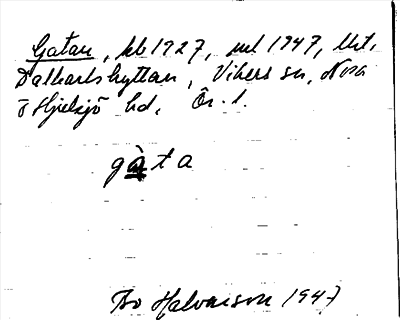 Gatan, kb 1927, ml 1947, Utt.
Dalkarlshyttan, Vikers sn, Nora
o Hjulsjö hd, Ör. l.
gàta
Bo Halvarson 1947